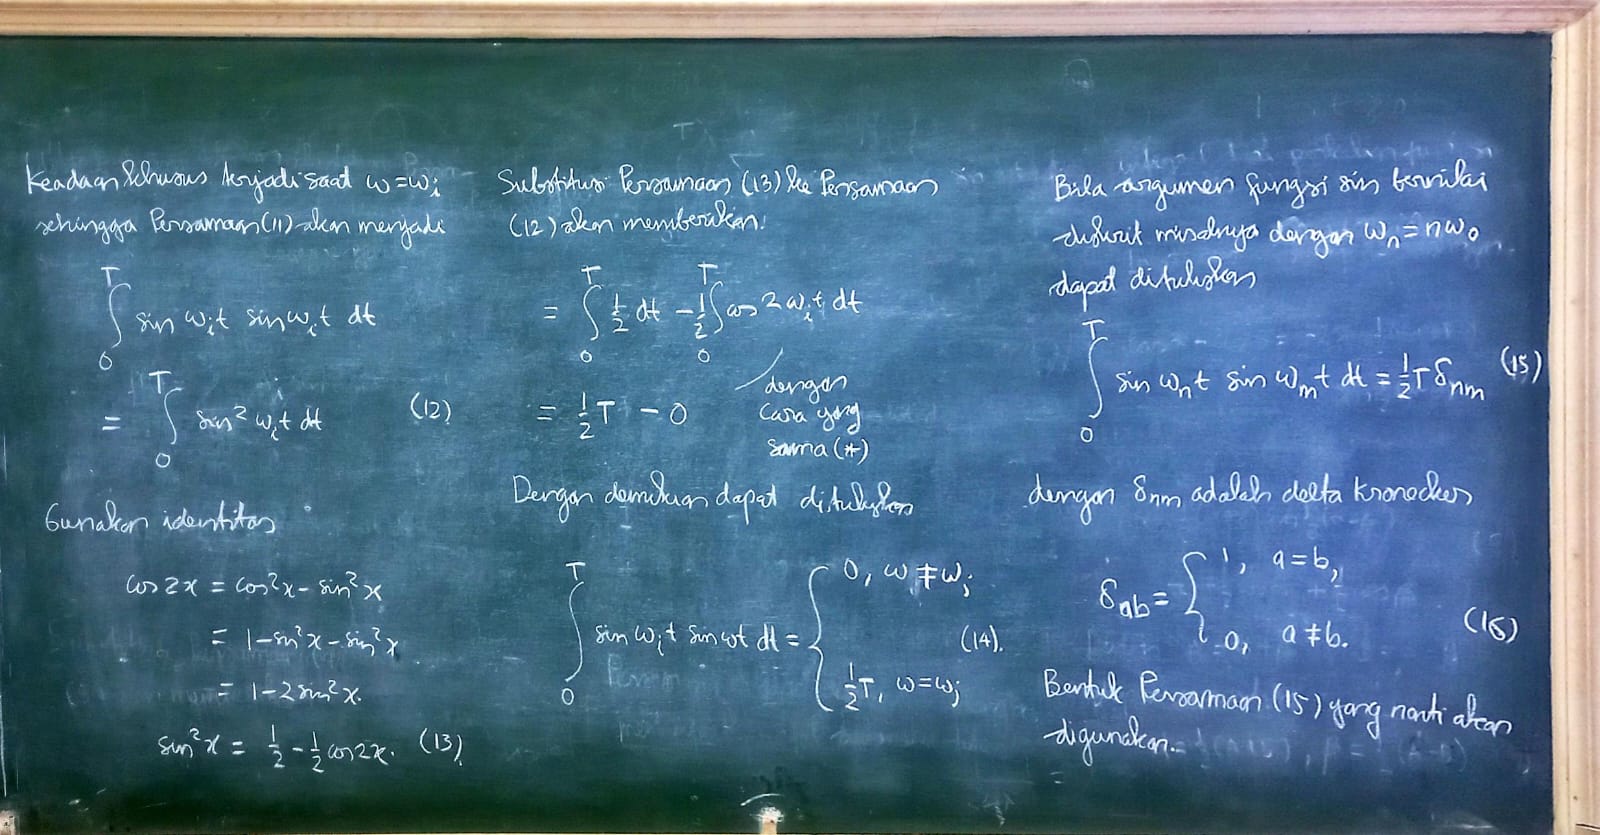 Keadaan khusus terjadi saat ω = ωᵢ
sehingga Persamaan (11) akan menjadi
∫₀ᵀ sin ωᵢt sin ωᵢt dt
= ∫₀ᵀ sin² ωᵢt dt (12)
Gunakan identitas
cos 2x = cos²x - sin²x
= 1 - sin²x - sin²x
= 1 - 2 sin²x.
sin²x = 1/2 - 1/2 cos 2x. (13)
Substitusi Persamaan (13) ke Persamaan
(12) akan memberikan.
= ∫₀ᵀ 1/2 dt - 1/2 ∫₀ᵀ cos 2 ωᵢt dt
dengan
cara yang
sama (*)
= 1/2 T - 0
Dengan demikian dapat dituliskan
∫₀ᵀ sin ωᵢt sin ωt dt = { 0, ω ≠ ωⱼ
1/2 T, ω = ωⱼ (14).
Bila argumen fungsi sin bernilai
diskrit misalnya dengan ωₙ = nω₀
dapat dituliskan
∫₀ᵀ sin ωₙt sin ωₘt dt = 1/2 T δₙₘ (15)
dengan δₙₘ adalah delta Kronecker
δab = { 1, a = b,
0, a ≠ b. (16)
Bentuk Persamaan (15) yang nanti akan
digunakan.